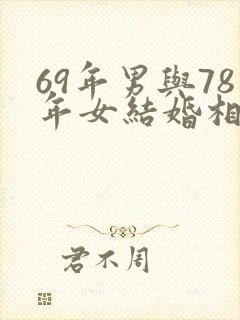 69年男與78
年女結婚相
君不周